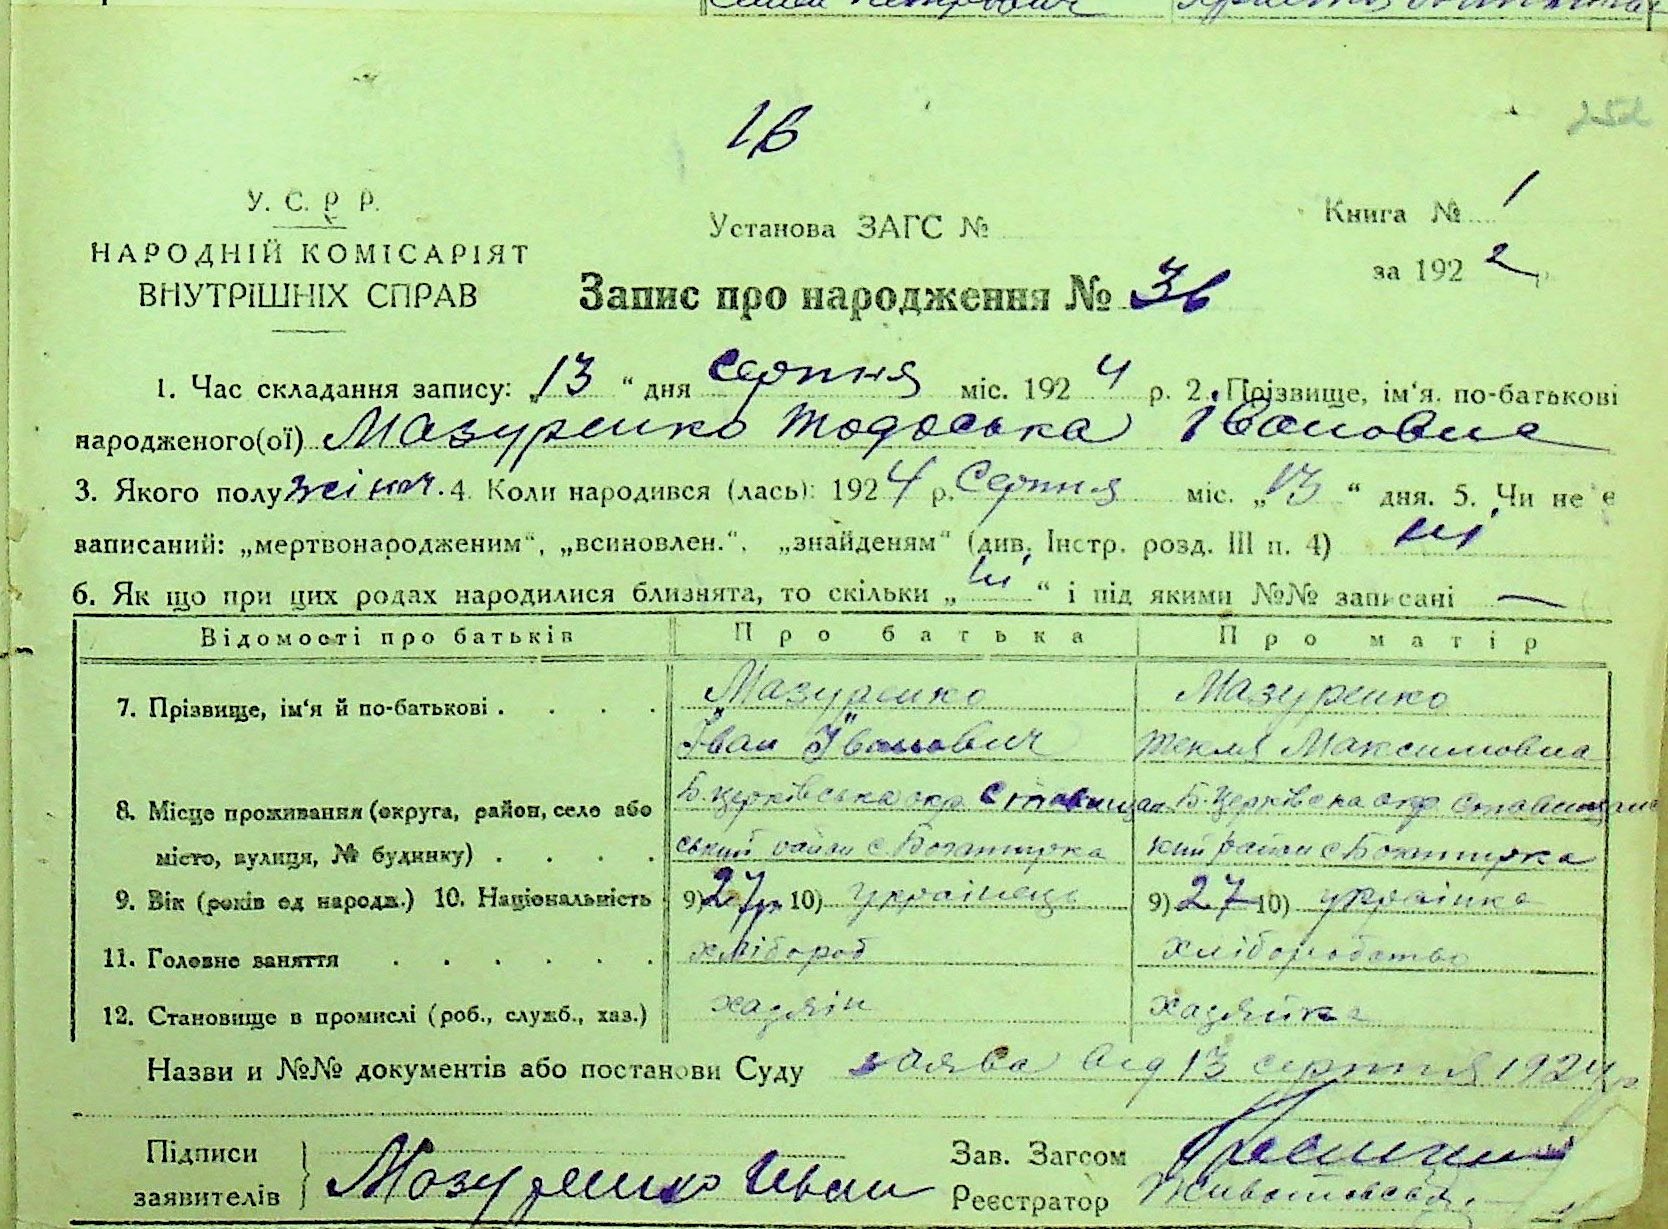 1в
У. С. Р. Р.
НАРОДНІЙ КОМІСАРІЯТ
ВНУТРІШНІХ СПРАВ
Установа ЗАГС №
Книга № 1
за 192
Запис про народження №
1. Час складання запису: „13“ дня серпня міс. 1924 р. 2. Прізвище, ім‘я. по-батькові
народженого(ої) Мазуренко Тодоська Івановна
3. Якого полу жіноч. 4. Коли народився (лась): 1924 р. Серпня міс. „13“ дня. 5. Чи не є
записаний: „мертвонародженим“, „всиновлен.“, „знайденям“ (див. Інстр. розд. III п. 4) ні
6. Як що при цих родах народилися близнята, то скільки „ні“ і під якими №№ записані —
Відомості про батьків Про батька Про матір
7. Прізвище, ім‘я й по-батькові . . . . Мазуренко Мазуренко
Іван Іванович Текля Максимовна
8. Місце проживання (округа, район, село або Б. церківська окр. Ставищан Б. Церківська окр Ставищанс
місто, вулиця, № будинку) . . . . ський район с Богатирка кий район с Богатирка
9. Вік (років од народж.) 10. Національність 9) 27 р 10) українець 9) 27 10) українка
11. Головне заняття . . . . . . хлібороб хліборобство
12. Становище в промислі (роб., служб., хаз.) хазяїн хазяйка
Назви и №№ документів або постанови Суду заява від 13 серпня 1924 р
Підписи
заявителів } Мазуренко Иван
Зав. Загсом
Реєстратор